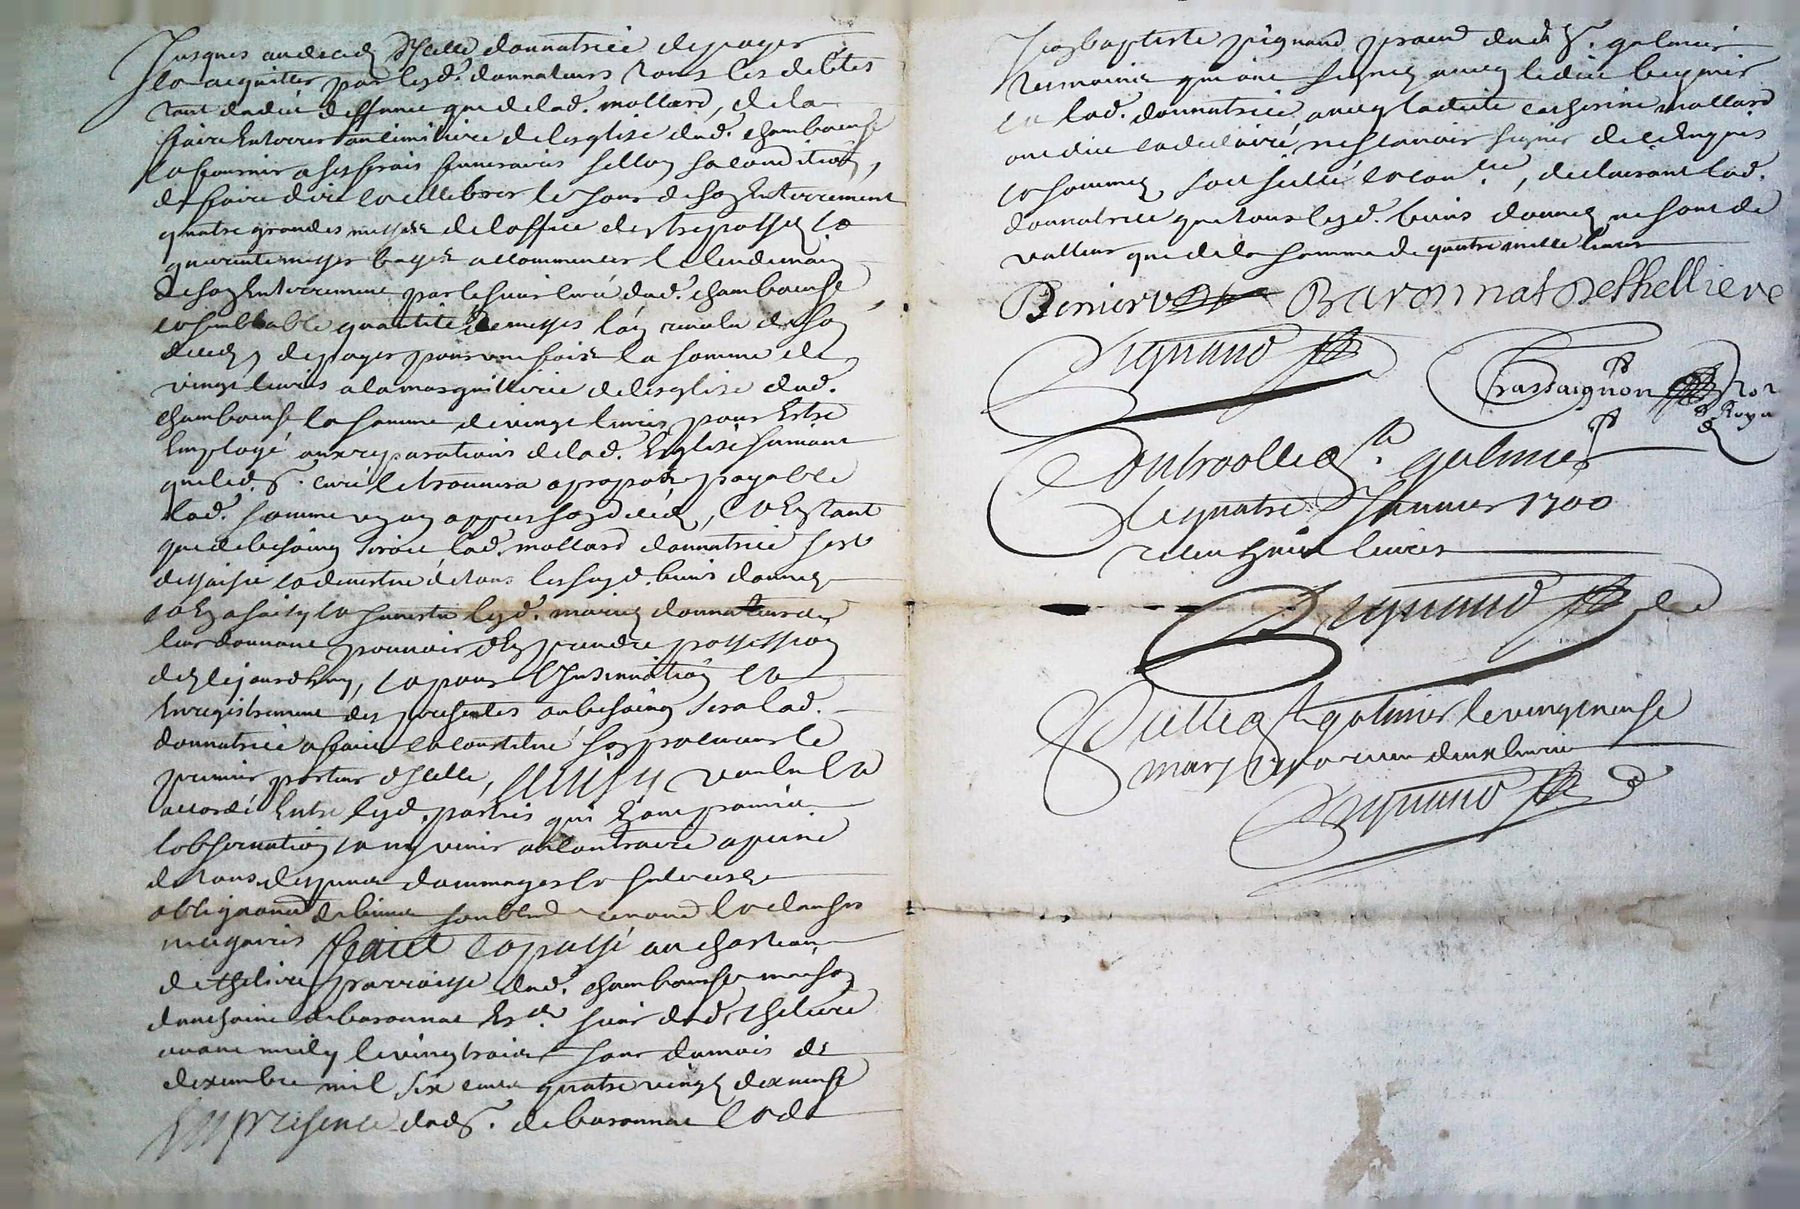 Jusques au deced d'Icelle donnatrice de payer
et acquitter par lesd. donnateurs tous les debtes
tant dudit deffunct que de lad. mollard, de la
ffaire Enterrer au cimitiere de lesglise dud. chambaeuf
et fournir a ses frais funeraires sellon sa condition,
de ffaire dire et cellebrer le Jour de son Enterrement
quatre grandes messes de loffice des trepasses et
quarante messes basses a commencer le lendemain
de son Enterrement par le sieur curé dud. chambaeuf
et semblable quantité de messes l'an revolu de son
deced, de payer pour une fois la somme de
vingt livres a la marguillerie de lesglise dud.
chambaeuf la somme de vingt livres pour Estre
Employé aux reparations de lad. Esglise suivant
que led. S. curé le trouvera a propos payable
lad. somme un an appres son deced, et Enstant
que de besoing seroit lad. mollard donnatrice sest
dessaisie et devestue de tous les susd. biens donnez
et En a saisy et Investu lesd. mariez donnateurs
leur donnant pouvoir d'En prendre possession
dez le jourdhuy, et pour l'Insinuation et
Enregistrement des presentes au besoing sera lad.
donnatrice a faire et constitué son procureur le
premier porteur d'Icelle, ainsy voulu et
accordé Entre lesd. parties qui En ont promis
lobservation et ny venir au contraire a peine
de tous despens dommages et Interests
obligeant de biens soubmd renond et clauses
necessaires ffaict et passé au chasteau
de thelliere parroisse dud. chambaeuf maison
danthoine de baronnat Esc. sieur dud. theliere
avant midy le vingtrois Jour du mois de
dexembre mil six cent quatre vingt dixneuf
En presence dud S. de baronnat et de
Jean baptiste pignand prad dud S. galmier
tesmoins qui ont signez avec ledit beynier
et lad. donnatrice avec ladite catherine mollard
ont dit et declairé ne scavoir signer de ce Enquis
et sommez, declairant lad.
donnatrice que tous lesd. biens donnez ne sont de
valleur que de la somme de quatre mille livres
Benier Baronnat De thelliere
Pignand
Chassaignon nor Royal
Controollé a St. galmier
le quatre Janvier 1700
receu huict livres
Pignand
Scellé a St galmier le vingt neuf
mars receu deux livres
Pignand